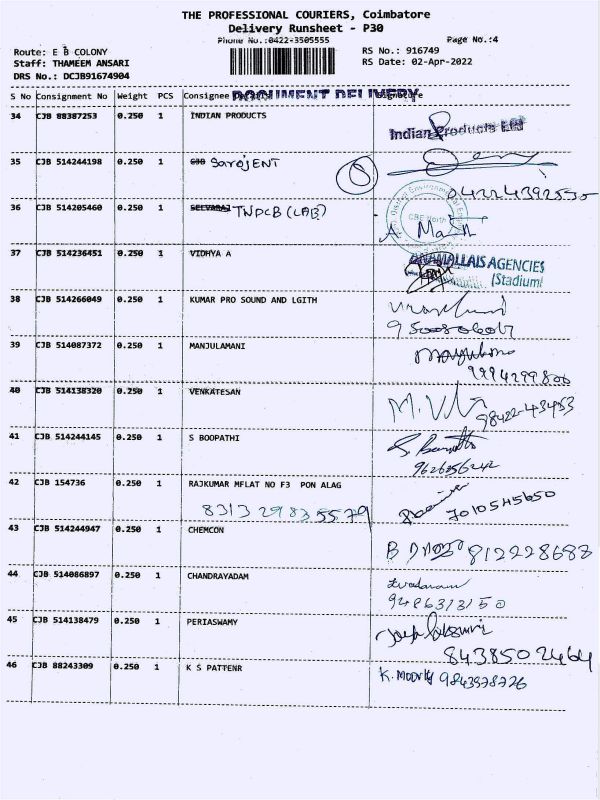 THE PROFESSIONAL COURIERS, Coimbatore
Delivery Runsheet - P30
Phone No.:0422-3505555
Page No.:4
Route: E B COLONY
RS No.: 916749
Staff: THAMEEM ANSARI
RS Date: 02-Apr-2022
DRS No.: DCJB91674904
S No Consignment No Weight PCS Consignee
DOCUMENT DELIVERY
34 CJB 88387253 0.250 1 INDIAN PRODUCTS
Indian Products Ltd
35 CJB 514244198 0.250 1 SarojENT
04224392555
36 CJB 514205460 0.250 1 TNPCB (LAB)
CBE North
37 CJB 514236451 0.250 1 VIDHYA A
ANAMALLAIS AGENCIES
(Stadium)
38 CJB 514266049 0.250 1 KUMAR PRO SOUND AND LGITH
39 CJB 514087372 0.250 1 MANJULAMANI
9994299800
40 CJB 514138320 0.250 1 VENKATESAN
98422-43453
41 CJB 514244145 0.250 1 S BOOPATHI
9626356242
42 CJB 154736 0.250 1 RAJKUMAR MFLAT NO F3 PON ALAG
8313 29835579
7010545650
43 CJB 514244947 0.250 1 CHEMCON
812228687
44 CJB 514086897 0.250 1 CHANDRAYADAM
9486313150
45 CJB 514138479 0.250 1 PERIASWAMY
8438502464
46 CJB 88243309 0.250 1 K S PATTENR
K. Moorthy 9843978726